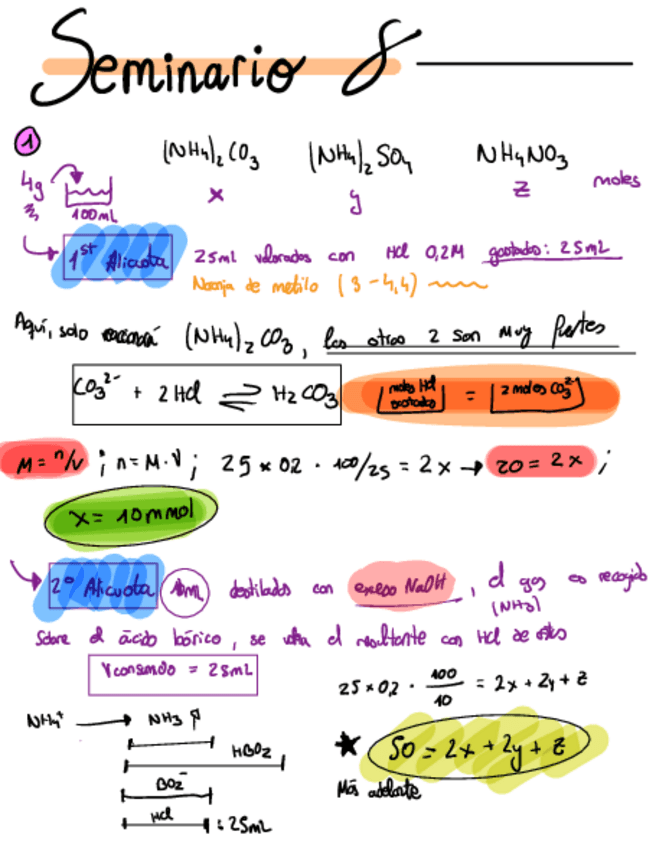 Seminario 8
1
(NH4)2CO3 (NH4)2SO4 NH4NO3
4g 100mL x y z moles
1st Alicuota 25ml valorados con Hcl 0,2M gastados: 25mL
Naranja de metilo (3-4,4)
Aquí, solo (NH4)2CO3, los otros 2 son muy fuertes
CO3²⁻ + 2 HCl ⇌ H2CO3 moles Hcl gastados = 2 moles CO3²⁻
M = n/v ; n = M·V ; 25 × 02 · 100/25 = 2x → 20 = 2x ;
x = 10mmol
2º Alicuota 10mL destilados con exceso NaOH, el gas es recogido
(NH3)
Sobre el ácido bórico, se valora el resultante con Hcl de antes
V consumido = 25mL
25 × 0,2 · 100/10 = 2x + 2y + z
NH4⁺ → NH3 ↑
★ 50 = 2x + 2y + z
HBO2
Más adelante
BO2⁻
Hcl : 25mL